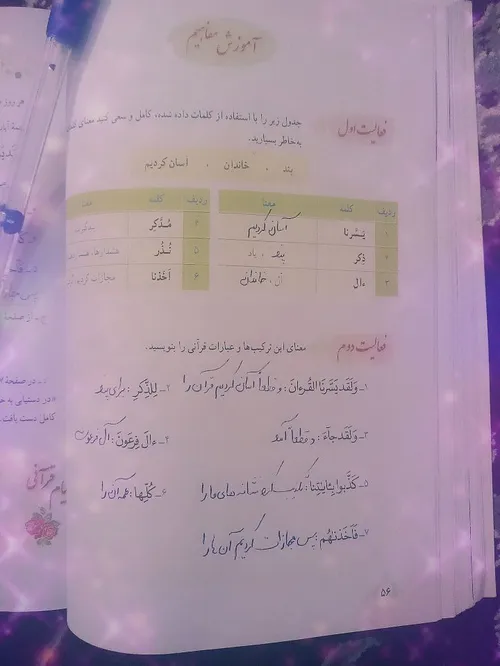 آموزش مفاهیم
فعالیت اول
جدول زیر را با استفاده از کلمات داده شده، کامل و سعی کنید معنای
به‌خاطر بسپارید.
پند ، خاندان ، آسان کردیم
ردیف کلمه معنا ردیف کلمه معنا
۱ یَسَّرنا آسان کردیم ۴ مُدَّکِر
۲ ذِکر پند ، یاد ۵ نُذُر هشدارها،
۳ ءال آل ، خاندان ۶ اَخَذنا مجازات کردیم،
فعالیت دوم
معنای این ترکیب‌ها و عبارات قرآنی را بنویسید.
۱ـ وَلَقَد یَسَّرنَا القُرءانَ: و قطعاً آسان کردیم قرآن را ۲ـ لِلذِّکرِ: برای پند
۳ـ وَلَقَد جاءَ: و قطعاً آمد ۴ـ ءالَ فِرعَونَ: آل فرعون
۵ـ کَذَّبوا بِـٔایٰتِنا: تکذیب کردند نشانه های ما را ۶ـ کُلِّها: همه آن را
۷ـ فَاَخَذنٰهُم: پس مجازات کردیم آن ها را
۵۶
هر روز
کامل دست یافت.
پیام قرآنی